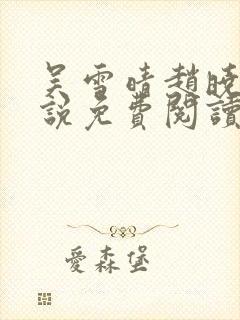 吴雪晴趙曉
說免費閱讀
愛森堡